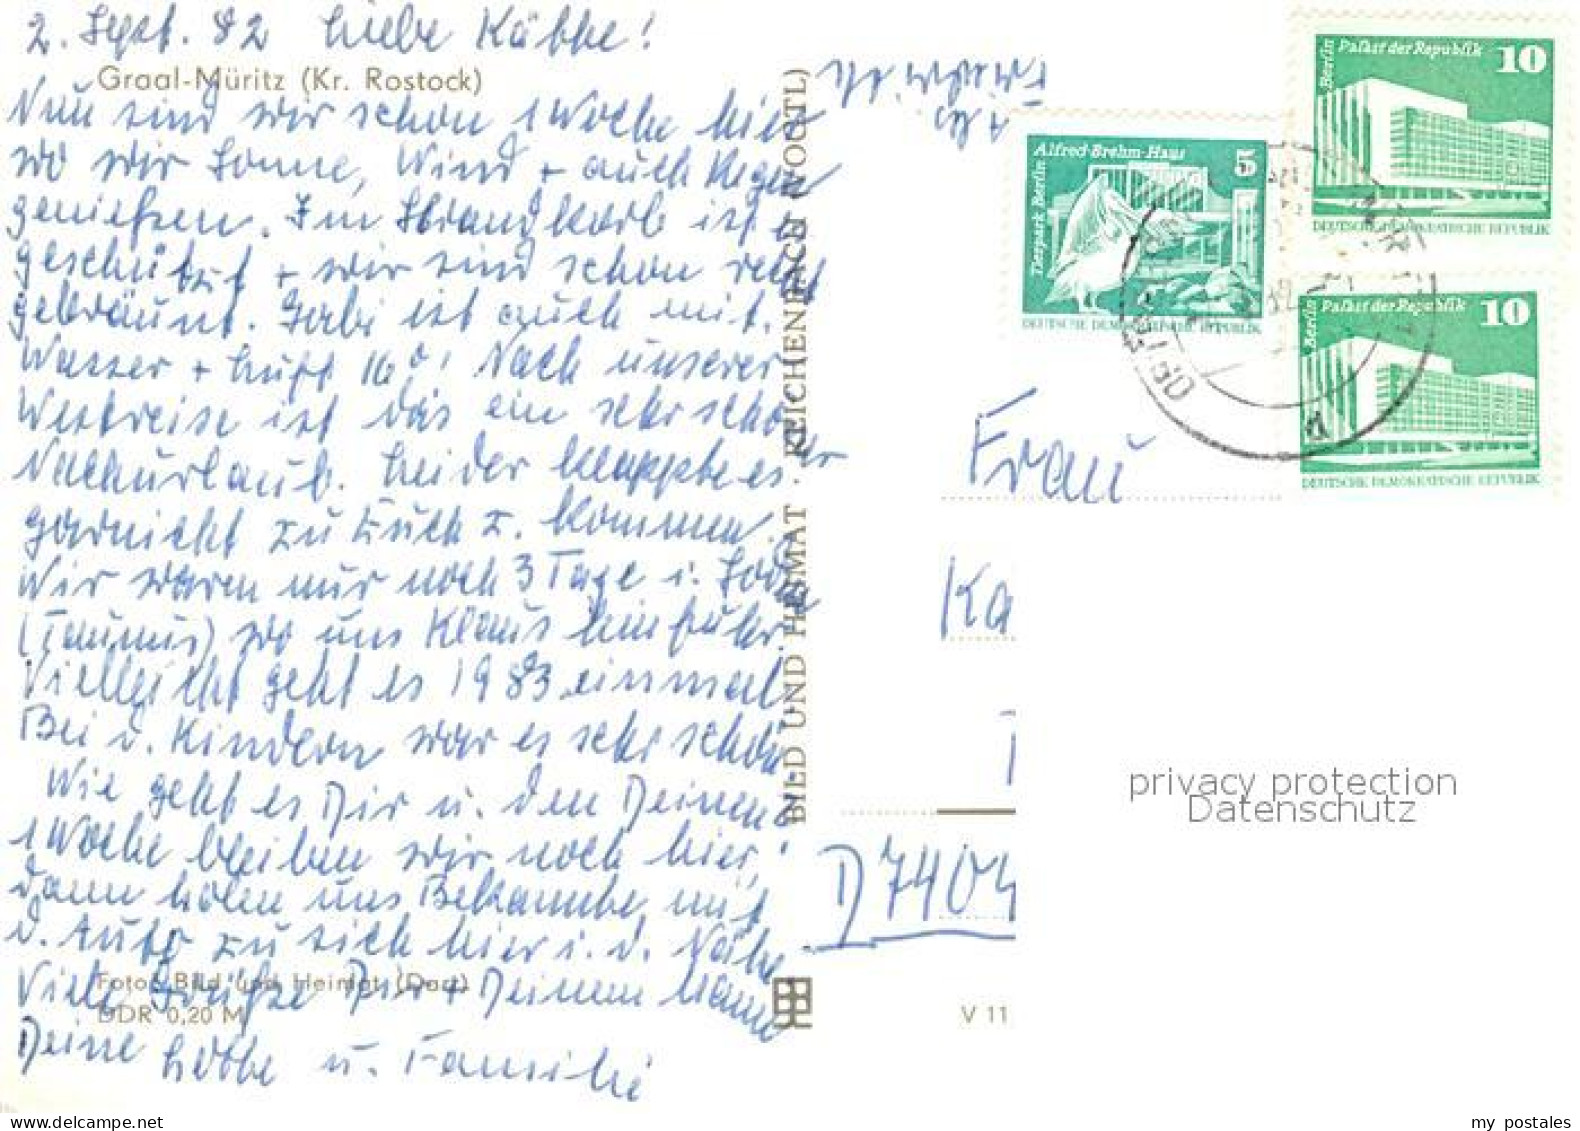 2. Sept. 82 Liebe Käthe!
Graal-Müritz (Kr. Rostock)
Nun sind wir schon 1 Woche hier
wo wir Sonne, Wind + auch Regen
genießen. Im Strandkorb ist es
geschützt + wir sind schon recht
gebräunt. Gabi ist auch mit.
Wasser + Luft 16°! Nach unserer
Westreise ist das ein sehr schöner
Nachurlaub. Leider klappte es
garnicht zu Euch z. kommen.
Wir waren nur noch 3 Tage i.
(Taunus) wo uns Klaus hinfuhr.
Vielleicht geht es 1983 einmal.
Bei d. Kindern war es sehr schön.
Wie geht es Dir u. den Deinen
1 Woche bleiben wir noch hier,
dann holen uns Bekannte mit
d. Auto zu sich hier i. d. Nähe
Foto: Bild und Heimat (Dart)
Viele Grüße Dir + Deinem Mann
DDR 0,20 M
Deine Lotte u. Familie
BILD UND HEIMAT REICHENBACH (VOGTL)
Tierpark Berlin
Alfred-Brehm-Haus 5
DEUTSCHE DEMOKRATISCHE REPUBLIK
Berlin
Palast der Republik 10
DEUTSCHE DEMOKRATISCHE REPUBLIK
Berlin
Palast der Republik 10
DEUTSCHE DEMOKRATISCHE REPUBLIK
Frau
Ka
D 7404
V 11
privacy protection
Datenschutz
my postales